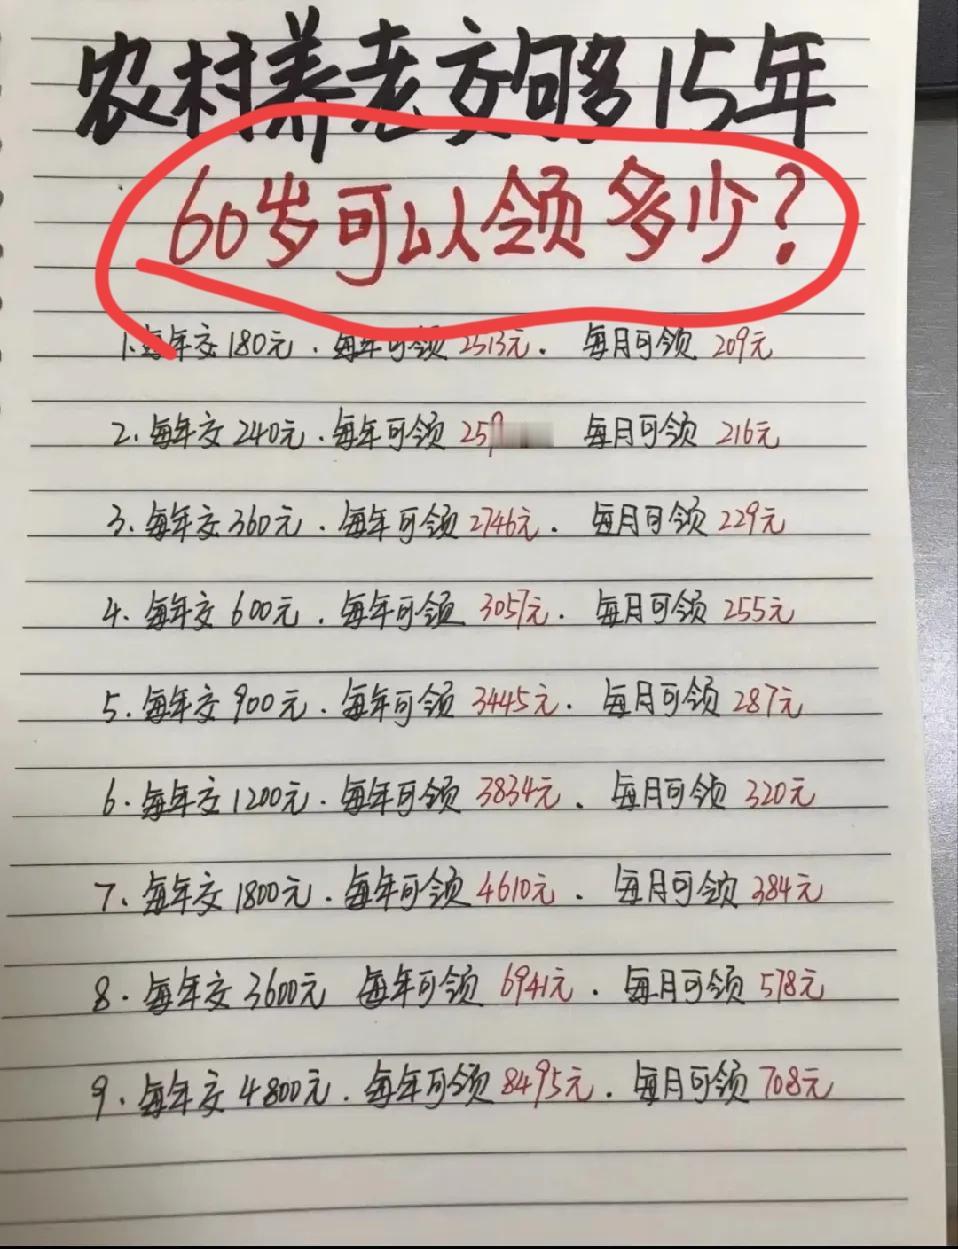 农村养老交够15年
60岁可以领多少?
1.每年交180元.每年可领2513元.每月可领209元
2.每年交240元.每年可领25 每月可领216元
3.每年交360元.每年可领2746元.每月可领229元
4.每年交600元.每年可领3057元.每月可领255元
5.每年交900元.每年可领3445元.每月可领287元
6.每年交1200元.每年可领3834元.每月可领320元
7.每年交1800元.每年可领4610元.每月可领384元
8.每年交3600元 每年可领6941元.每月可领578元
9.每年交4800元.每年可领8495元.每月可领708元